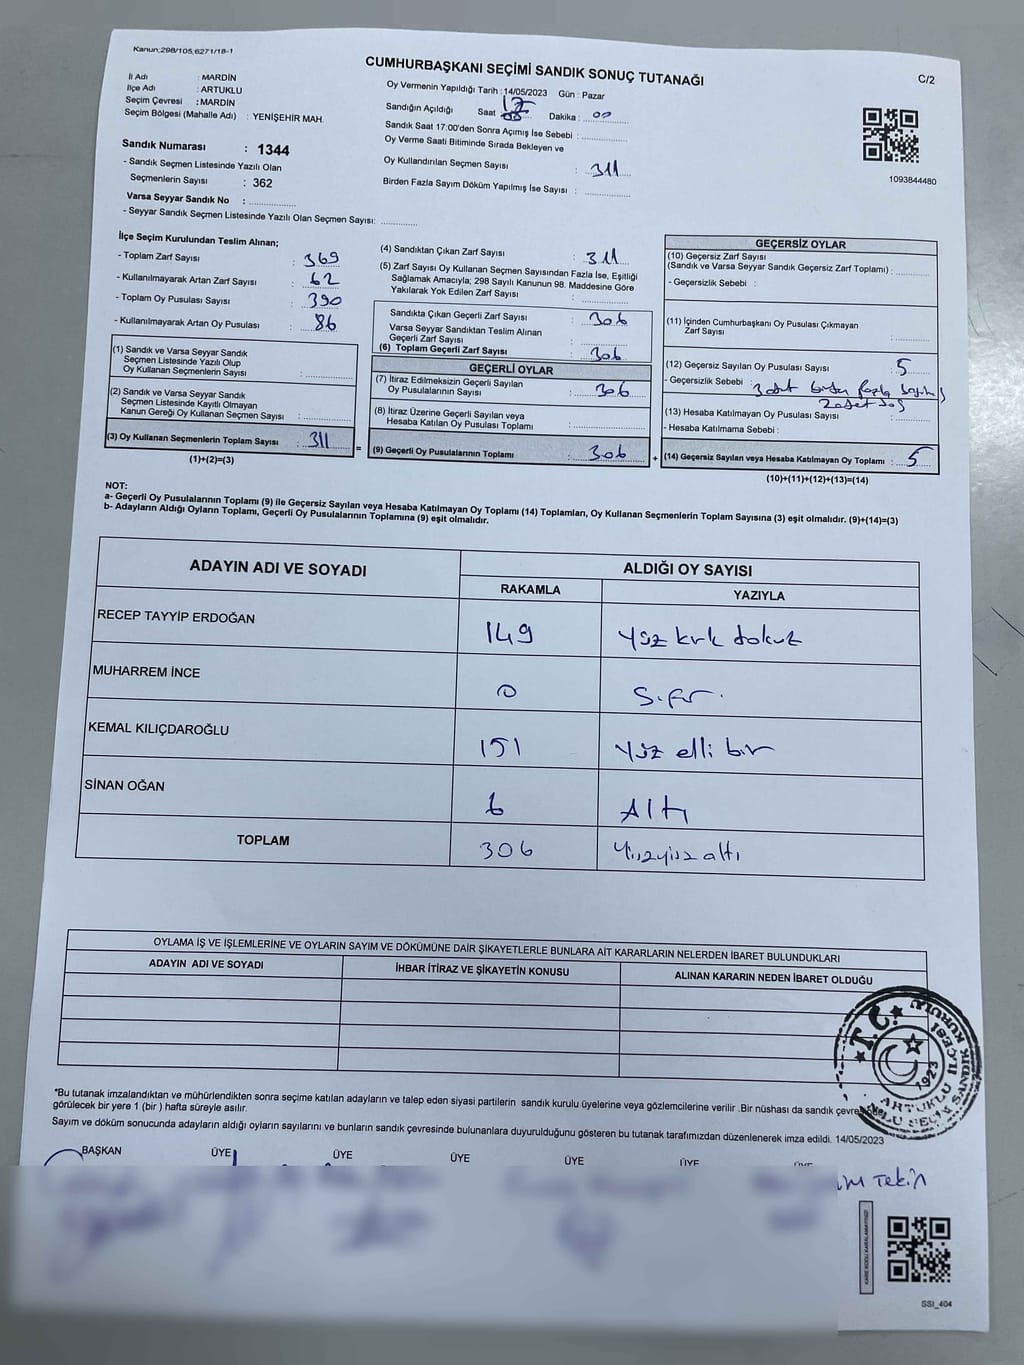 Kanun;298/105,6271/18-1
CUMHURBAŞKANI SEÇİMİ SANDIK SONUÇ TUTANAĞI
C/2
İl Adı : MARDİN
İlçe Adı : ARTUKLU
Seçim Çevresi : MARDİN
Seçim Bölgesi (Mahalle Adı) : YENİŞEHİR MAH.
Sandık Numarası : 1344
- Sandık Seçmen Listesinde Yazılı Olan
Seçmenlerin Sayısı : 362
Varsa Seyyar Sandık No :
- Seyyar Sandık Seçmen Listesinde Yazılı Olan Seçmen Sayısı:
Oy Vermenin Yapıldığı Tarih : 14/05/2023 Gün : Pazar
Sandığın Açıldığı Saat 17 Dakika : 00
Sandık Saat 17:00'den Sonra Açımış İse Sebebi :
Oy Verme Saati Bitiminde Sırada Bekleyen ve
Oy Kullandırılan Seçmen Sayısı : 311
Birden Fazla Sayım Döküm Yapılmış İse Sayısı :
1093844480
İlçe Seçim Kurulundan Teslim Alınan;
- Toplam Zarf Sayısı : 369
- Kullanılmayarak Artan Zarf Sayısı : 62
- Toplam Oy Pusulası Sayısı : 390
- Kullanılmayarak Artan Oy Pusulası : 86
(1) Sandık ve Varsa Seyyar Sandık
Seçmen Listesinde Yazılı Olup
Oy Kullanan Seçmenlerin Sayısı :
(2) Sandık ve Varsa Seyyar Sandık
Seçmen Listesinde Kayıtlı Olmayan
Kanun Gereği Oy Kullanan Seçmen Sayısı :
(3) Oy Kullanan Seçmenlerin Toplam Sayısı : 311
(1)+(2)=(3)
(4) Sandıktan Çıkan Zarf Sayısı : 311
(5) Zarf Sayısı Oy Kullanan Seçmen Sayısından Fazla İse, Eşitliği
Sağlamak Amacıyla; 298 Sayılı Kanunun 98. Maddesine Göre
Yakılarak Yok Edilen Zarf Sayısı :
Sandıkta Çıkan Geçerli Zarf Sayısı : 306
Varsa Seyyar Sandıktan Teslim Alınan
Geçerli Zarf Sayısı :
(6) Toplam Geçerli Zarf Sayısı : 306
GEÇERLİ OYLAR
(7) İtiraz Edilmeksizin Geçerli Sayılan
Oy Pusulalarının Sayısı : 306
(8) İtiraz Üzerine Geçerli Sayılan veya
Hesaba Katılan Oy Pusulası Toplamı :
= (9) Geçerli Oy Pusulalarının Toplamı : 306 +
GEÇERSİZ OYLAR
(10) Geçersiz Zarf Sayısı
(Sandık ve Varsa Seyyar Sandık Geçersiz Zarf Toplamı) :
- Geçersizlik Sebebi :
(11) İçinden Cumhurbaşkanı Oy Pusulası Çıkmayan
Zarf Sayısı :
(12) Geçersiz Sayılan Oy Pusulası Sayısı : 5
- Geçersizlik Sebebi : 3 adet birden fazla
2 adet boş
(13) Hesaba Katılmayan Oy Pusulası Sayısı :
- Hesaba Katılmama Sebebi :
(14) Geçersiz Sayılan veya Hesaba Katılmayan Oy Toplamı : 5
(10)+(11)+(12)+(13)=(14)
NOT:
a- Geçerli Oy Pusulalarının Toplamı (9) ile Geçersiz Sayılan veya Hesaba Katılmayan Oy Toplamı (14) Toplamları, Oy Kullanan Seçmenlerin Toplam Sayısına (3) eşit olmalıdır. (9)+(14)=(3)
b- Adayların Aldığı Oyların Toplamı, Geçerli Oy Pusulalarının Toplamına (9) eşit olmalıdır.
ADAYIN ADI VE SOYADI
ALDIĞI OY SAYISI
RAKAMLA YAZIYLA
RECEP TAYYİP ERDOĞAN 149 Yüz kırk dokuz
MUHARREM İNCE 0 Sıfır.
KEMAL KILIÇDAROĞLU 151 Yüz elli bir
SİNAN OĞAN 6 Altı
TOPLAM 306 altı
OYLAMA İŞ VE İŞLEMLERİNE VE OYLARIN SAYIM VE DÖKÜMÜNE DAİR ŞİKAYETLERLE BUNLARA AİT KARARLARIN NELERDEN İBARET BULUNDUKLARI
ADAYIN ADI VE SOYADI İHBAR İTİRAZ VE ŞİKAYETİN KONUSU ALINAN KARARIN NEDEN İBARET OLDUĞU
*Bu tutanak imzalandıktan ve mühürlendikten sonra seçime katılan adayların ve talep eden siyasi partilerin sandık kurulu üyelerine veya gözlemcilerine verilir .Bir nüshası da sandık
görülecek bir yere 1 (bir ) hafta süreyle asılır.
Sayım ve döküm sonucunda adayların aldığı oyların sayılarını ve bunların sandık çevresinde bulunanlara duyurulduğunu gösteren bu tutanak tarafımızdan düzenlenerek imza edildi. 14/05/2023
T.C.
1923
ARTUKLU İLÇESİ
SANDIK KURULU
BAŞKAN ÜYE ÜYE ÜYE ÜYE ÜYE
Tekin
SSI_404